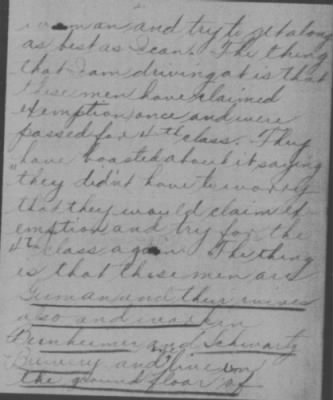 woman and try to get along
as best as I can. The thing
that I am driving at is that
these men have claimed
exemption once and were
passed for 4th class. They
have boasted about it saying
they didn't have to worry
that they would claim ex-
emption and try for the
4th class again. The thing
is that these men are
German and their wives
also and work in
Bernheimer and Schwartz
Brewery and live on
the ground floor of